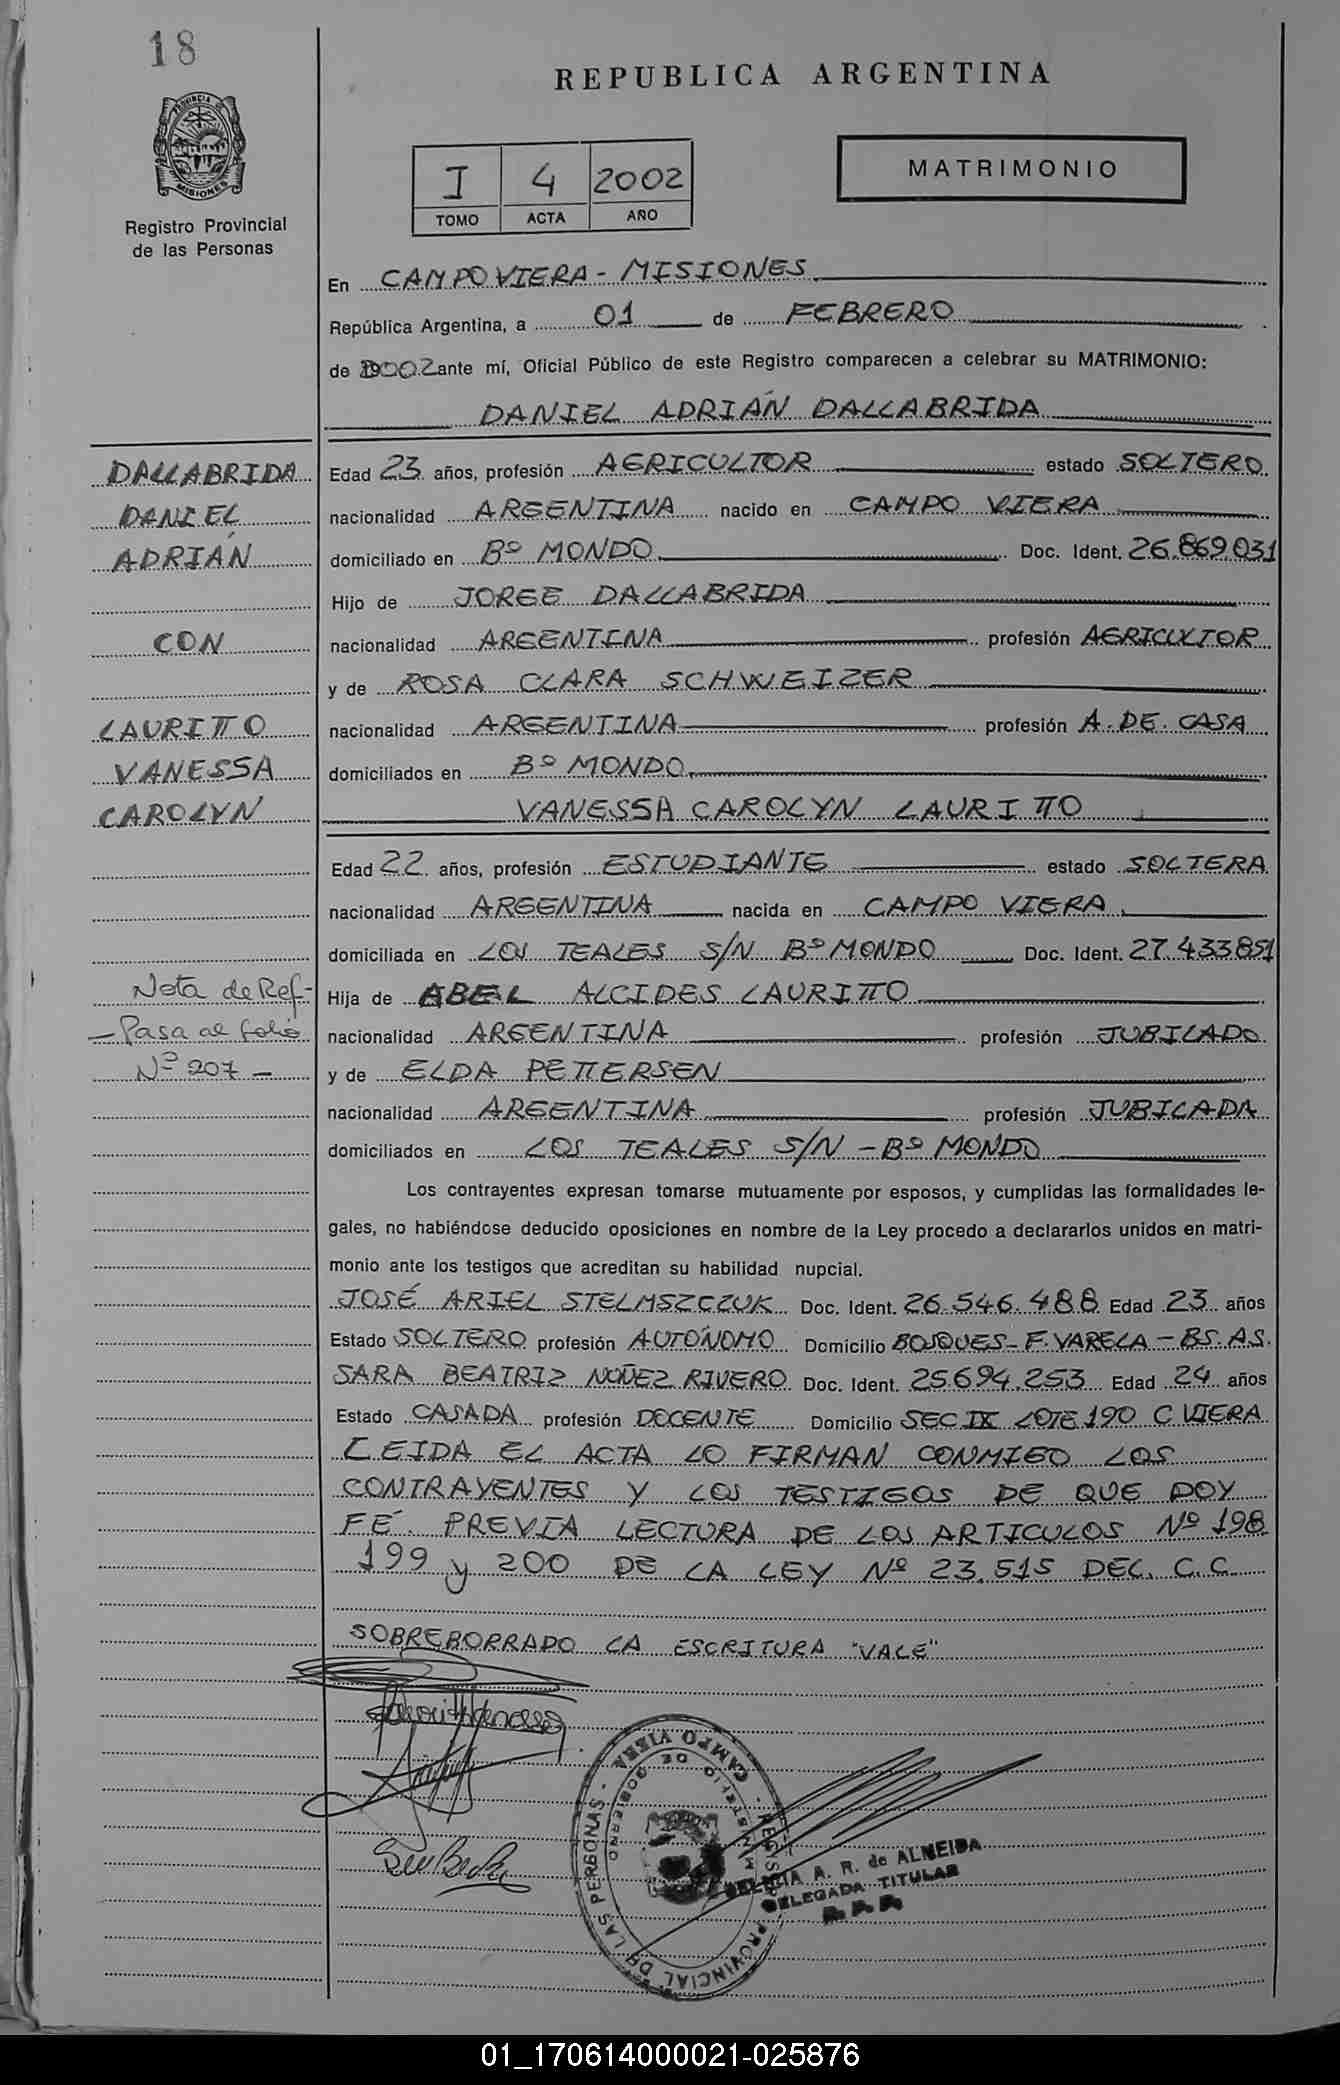 18
REPUBLICA ARGENTINA
PROVINCIA DE MISIONES
Registro Provincial
de las Personas
I 4 2002
TOMO ACTA AÑO
MATRIMONIO
En CAMPO VIERA - MISIONES
República Argentina, a 01 de FEBRERO
de 2002 ante mí, Oficial Público de este Registro comparecen a celebrar su MATRIMONIO:
DANIEL ADRIÁN DALLABRIDA
DALLABRIDA
DANIEL
ADRIÁN
CON
LAURITTO
VANESSA
CAROLYN
Edad 23 años, profesión AGRICULTOR estado SOLTERO
nacionalidad ARGENTINA nacido en CAMPO VIERA
domiciliado en Bº MONDO Doc. Ident. 26.869.031
Hijo de JORGE DALLABRIDA
nacionalidad ARGENTINA profesión AGRICULTOR
y de ROSA CLARA SCHWEIZER
nacionalidad ARGENTINA profesión A. DE. CASA
domiciliados en Bº MONDO
VANESSA CAROLYN LAURITTO
Edad 22 años, profesión ESTUDIANTE estado SOLTERA
nacionalidad ARGENTINA nacida en CAMPO VIERA
domiciliada en LOS TEALES S/N Bº MONDO Doc. Ident. 27.433.851
Nota de Ref-
- Pasa al folio
Nº 207 -
Hija de ABEL ALCIDES LAURITTO
nacionalidad ARGENTINA profesión JUBILADO
y de ELDA PETTERSEN
nacionalidad ARGENTINA profesión JUBILADA
domiciliados en LOS TEALES S/N - Bº MONDO
Los contrayentes expresan tomarse mutuamente por esposos, y cumplidas las formalidades le-
gales, no habiéndose deducido oposiciones en nombre de la Ley procedo a declararlos unidos en matri-
monio ante los testigos que acreditan su habilidad nupcial.
JOSÉ ARIEL STELMSZCZUK Doc. Ident. 26.546.488 Edad 23 años
Estado SOLTERO profesión AUTÓNOMO Domicilio BOSQUES - F. VARELA - BS. AS.
SARA BEATRIZ NÚÑEZ RIVERO Doc. Ident. 25.694.253 Edad 24 años
Estado CASADA profesión DOCENTE Domicilio SEC IX LOTE 190 C VIERA
LEIDA EL ACTA LO FIRMAN CONMIGO LOS
CONTRAYENTES Y LOS TESTIGOS DE QUE DOY
FÉ. PREVIA LECTURA DE LOS ARTICULOS Nº 198
199 y 200 DE LA LEY Nº 23.515 DEL. C.C.
SOBREBORRADO LA ESCRITURA "VALE"
REGISTRO PROVINCIAL DE LAS PERSONAS - CAMPO VIERA
MINISTERIO DE GOBIERNO
A. R. de ALMEIDA
DELEGADA TITULAR
R. P. P.
01_170614000021-025876